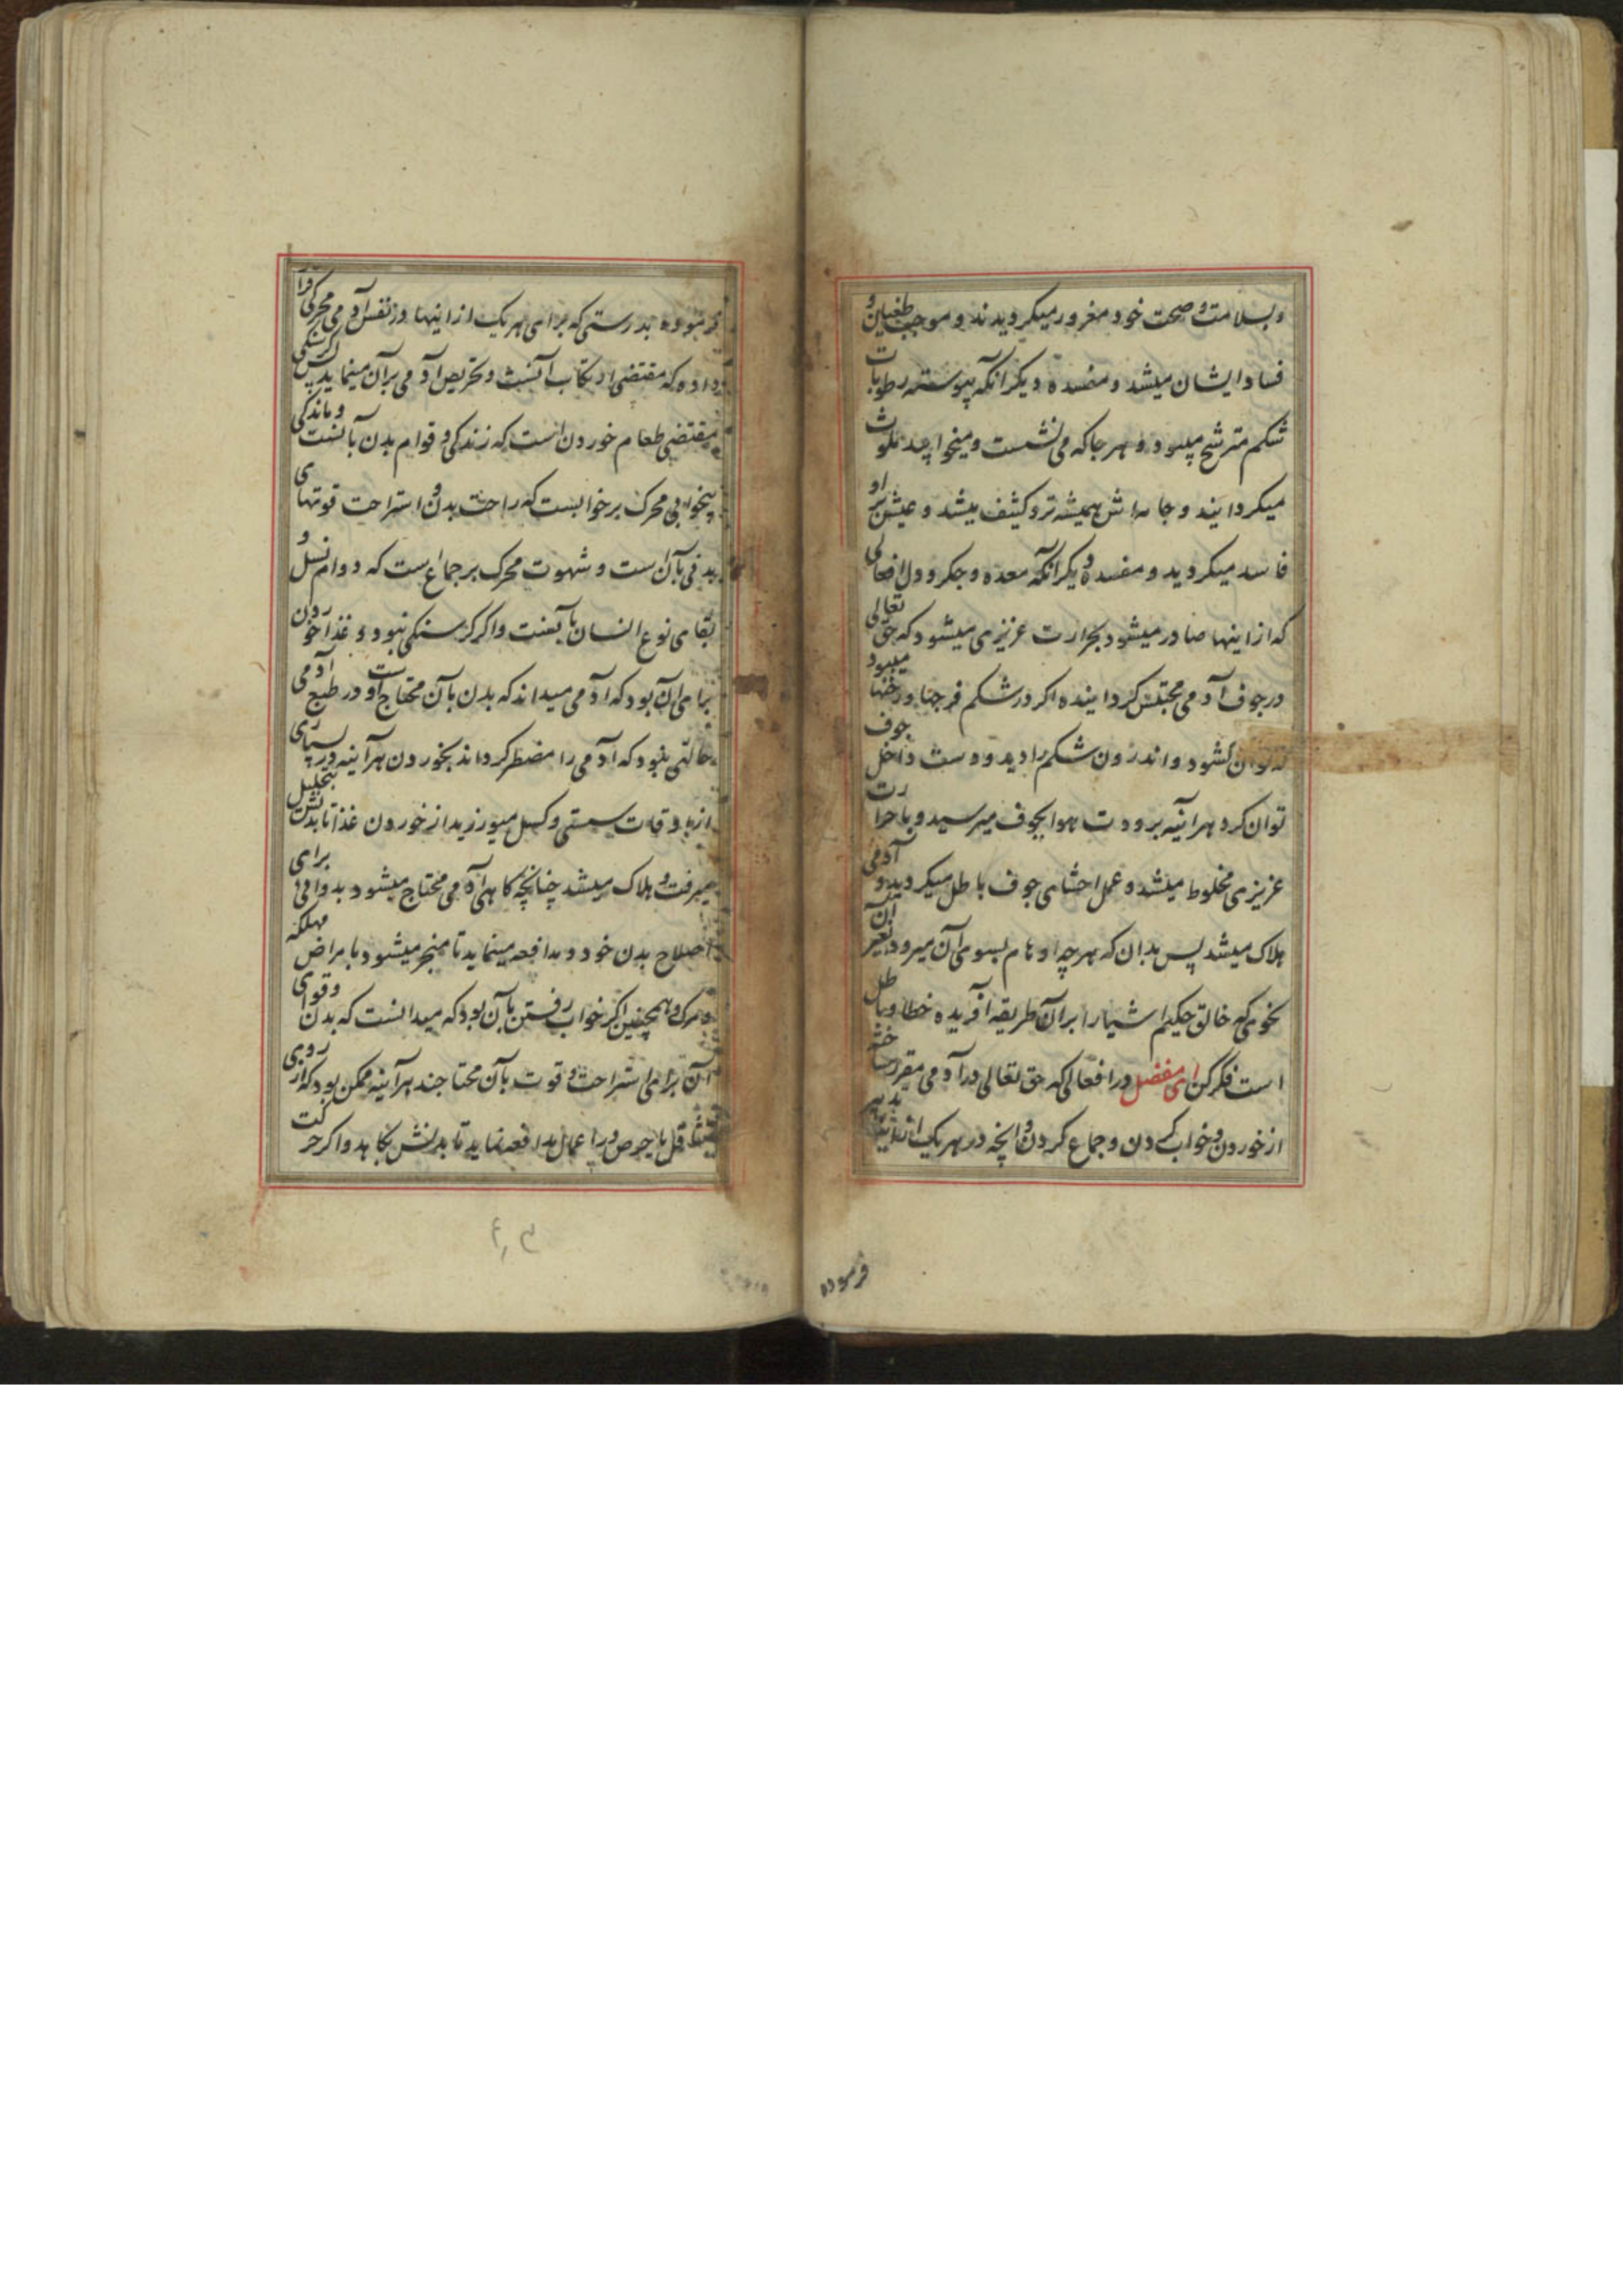 وبسلامت و صحت خود مغرور میکردیدند و موجب طغیان و
فساد ایشان میشد و مفسده دیکر انکه پیوسته رطوبات
شکم مترشح میبود و هر جا که می نشست و میخوابید ملوث
میکردانید و جامه اش همیشه تر و کثیف میشد و عیش بر او
فاسد میکردید و مفسده دیکر انکه معده و جکر و دل افعالی
که از اینها صادر میشود بحرارت عزیزی میشود که حق تعالی
در جوف آدمی محتبس کردانیده اکر در شکم فرجها و رخنها میبود
که توان کشود و اندرون شکم را دید و دست داخل جوف
توان کرد هراینه برودت هوا بجوف میرسید و با حرارت
عزیزی مخلوط میشد و عمل احشای جوف باطل میکردید و آدمی
هلاک میشد پس بدان که هر چه اوهام بسوی آن میرود بغیر آن
نحوی که خالق حکیم اشیا را بر آن طریقه آفریده خطا و باطل
است فکر کن ای مفضل در افعالی که حق تعالی در آدمی مقرر ساخته
از خوردن و خواب کردن و جماع کردن و انچه در هر یک از اینها تدبیر
فرموده
فرموده بدرستی که برای هر یک از اینها در نفس آدمی محرکی قرار
داده که مقتضی ارتکاب آنست و تحریص آدمی بر آن مینماید پس کرسنکی
مقتضی طعام خوردن است که زندکی و قوام بدن بآنست و ماندکی
بیخوابی محرک بر خوابست که راحت بدن و استراحت قوتهای
بدنی بآن است و شهوت محرک بر جماع است که دوام نسل و
بقای نوع انسان بآنست و اکر کرسنکی نبود و غذا خوردن
برای آن بود که آدمی میداند که بدن بآن محتاج است و در طبع آدمی
حالتی نبود که آدمی را مضطر کرداند بخوردن هرآینه در بسیاری
از اوقات سستی و کسل میورزید از خوردن غذا تا بدنش بتحلیل
میرفت و هلاک میشد چنانچه کاهی آدمی محتاج میشود بدوائی برای
اصلاح بدن خود و مدافعه مینماید تا منجر میشود بامراض مهلکه
و مرک و همچنین اکر خواب رفتن بآن بود که میدانست که بدن و قوای
آن برای استراحت و قوت بآن محتاجند هرآینه ممکن بود که از روی
تثاقل یا حرص در اعمال مدافعه نماید تا بدنش بکاهد و اکر حرکت